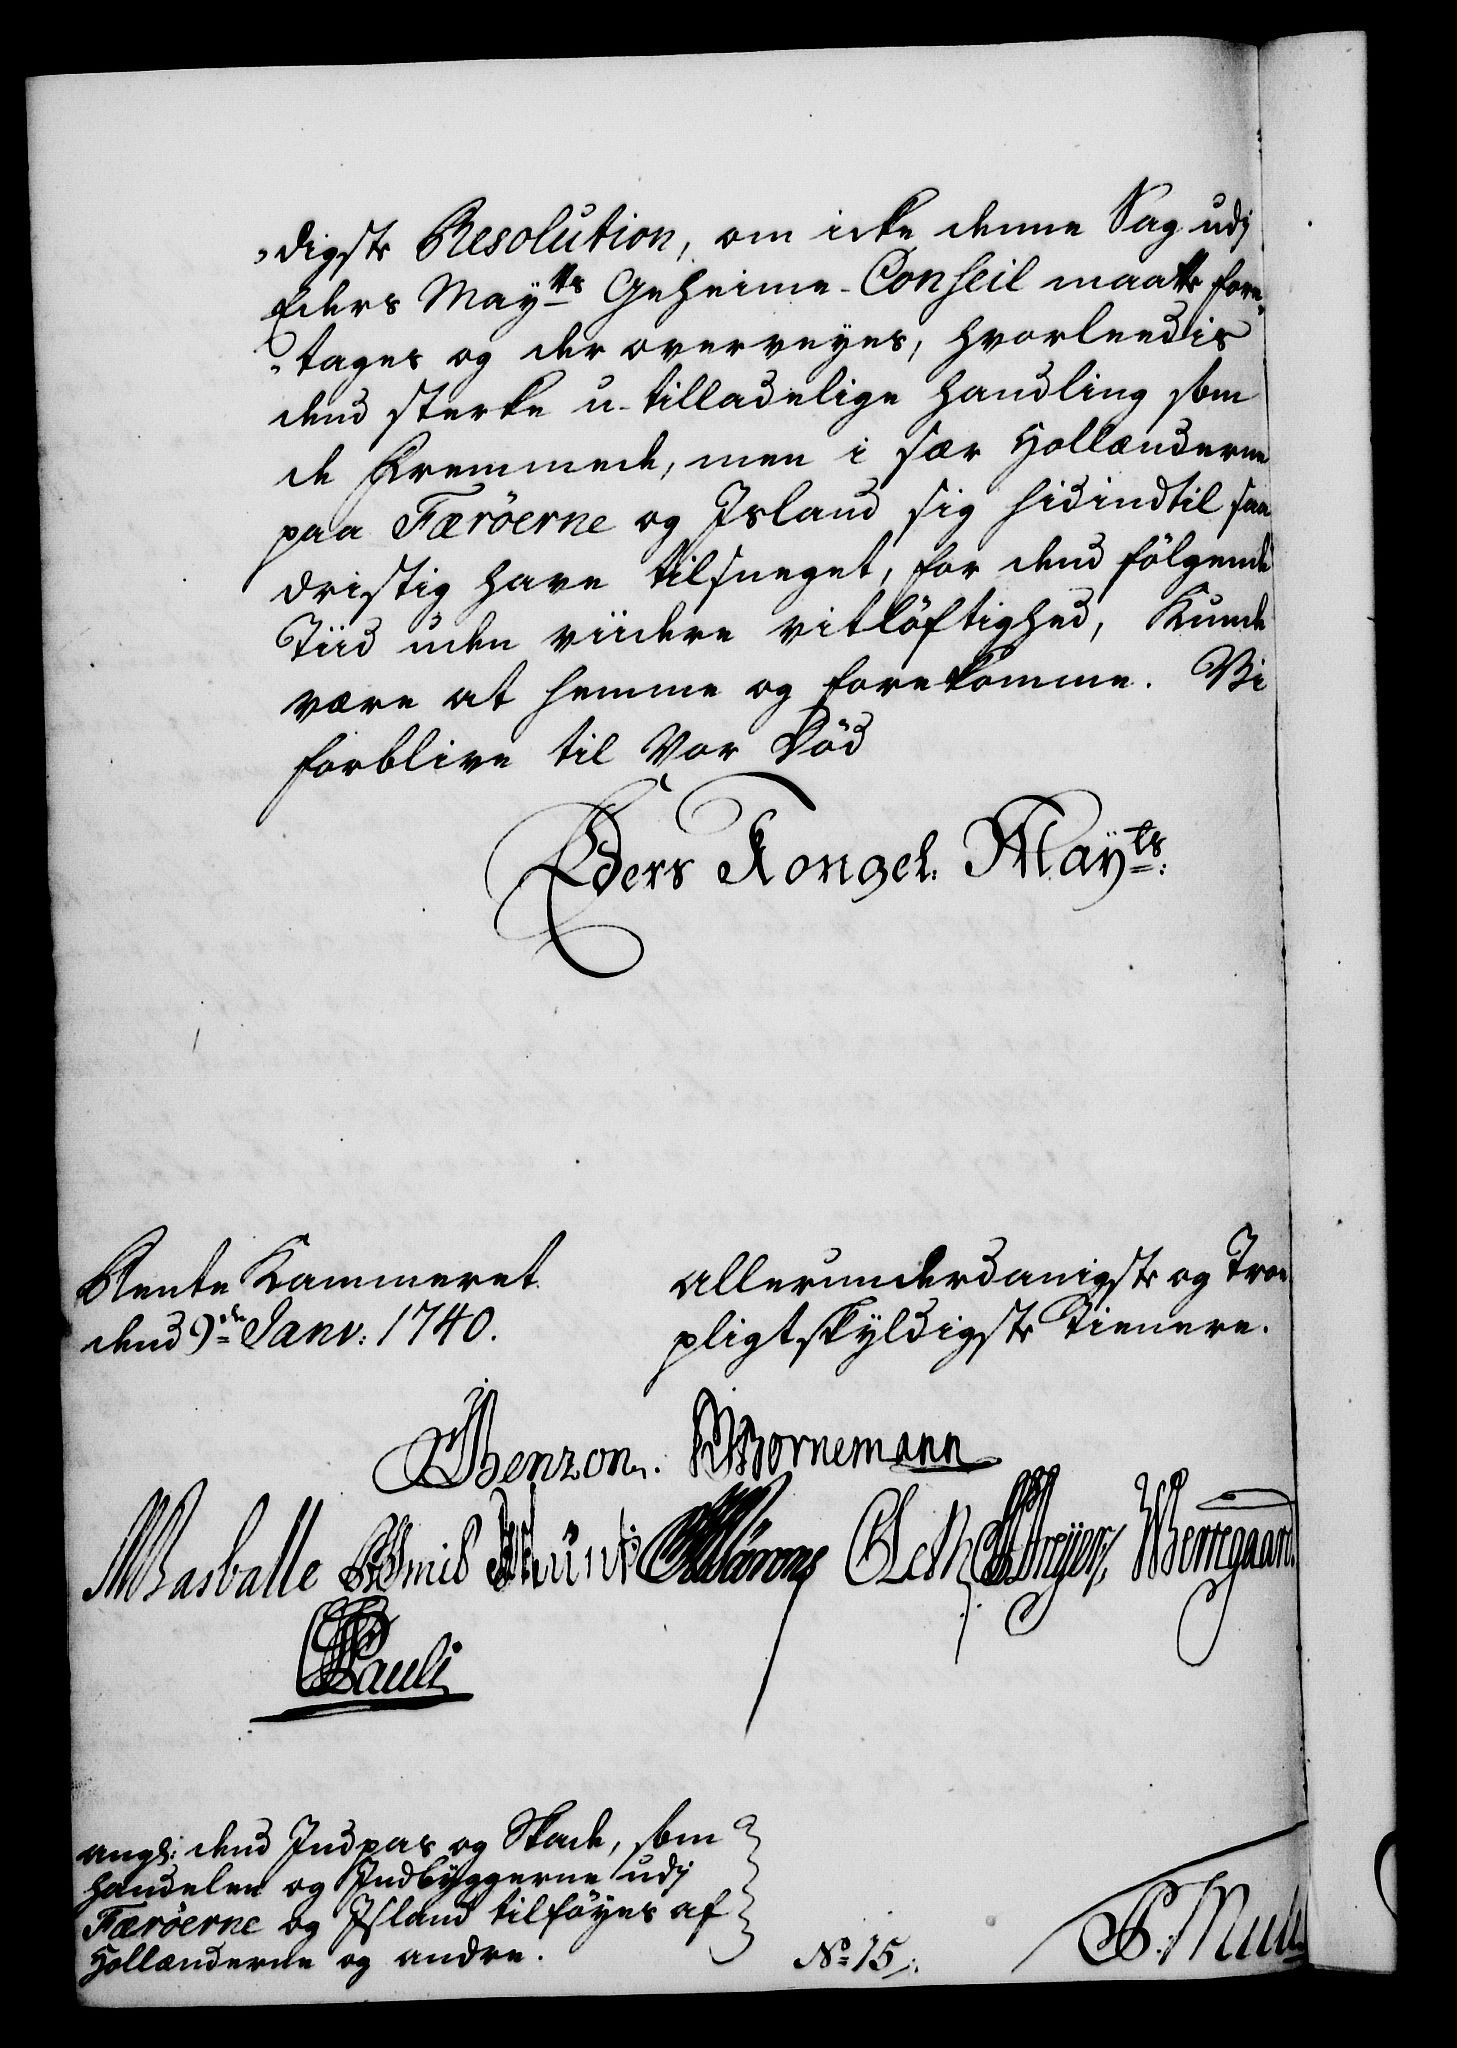 „digste Resolution, om icke denne Sag udj
Eders Mayts Geheime-Conseil maatte fore„
„tages og der overveyes, hvorleedis
dend sterke u-tilladelige Handling som
de Fremmede, men i sær Hollænderne
paa Færöerne og Island sig hidindtil saa
dristig have tilsneget, for dend fölgende
Tiid uden viidere vitlöftighed, Kunde
være at hemme og forekomme. Vi
forblive til Vor Död
Eders Kongel. Mayts:
Rente Kammeret
dend 9de Janv: 1740.
allerunderdanigste og Troe
pligtskyldigste Tienere.
Benzon. Bornemann
Basballe Smid Münt Ölreyer, Wormgaard
Pauli
angl: dend Indpas og Skade, som
Handelen og Indbyggerne udj
Færöerne og Island tilföyes af
Hollænderne og andre.
No 15/: